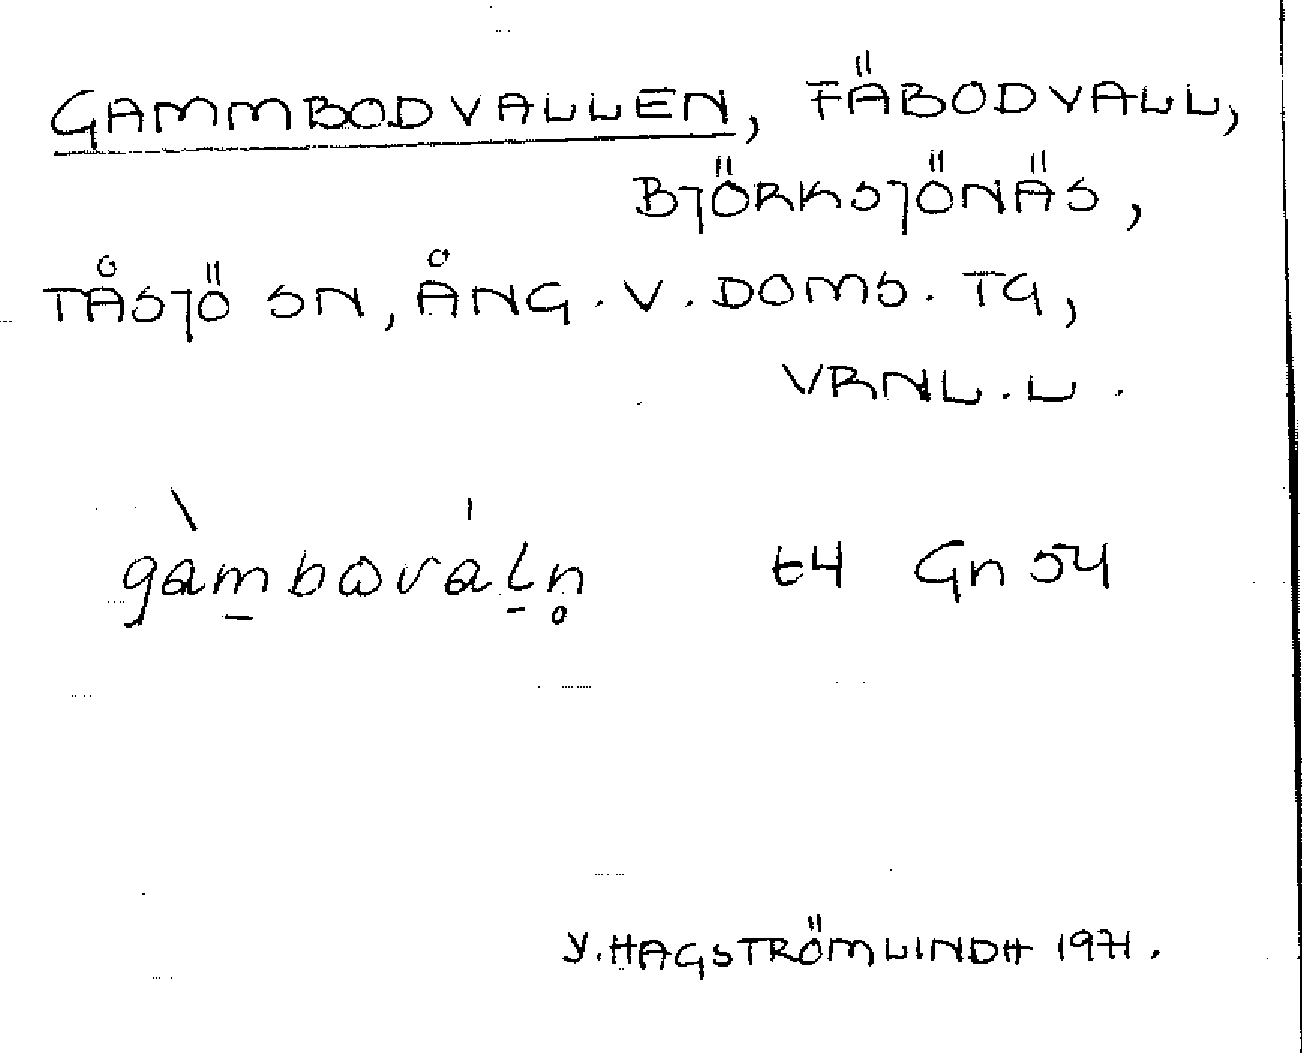 GAMMBODVALLEN, FÄBODVALL,
BJÖRKSJÖNÄS,
TÅSJÖ SN, ÅNG. V. DOMS. TG,
VRNL. L.
gàmbωváḻn̥ t4 Gn 54
Y. HAGSTRÖMLINDH 1971.